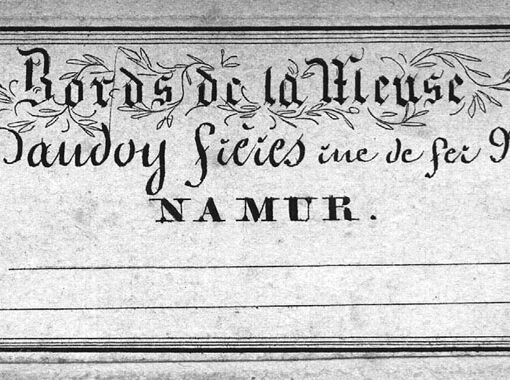 Bords de la Meuse
Dandoy frères rue de fer 9
NAMUR.